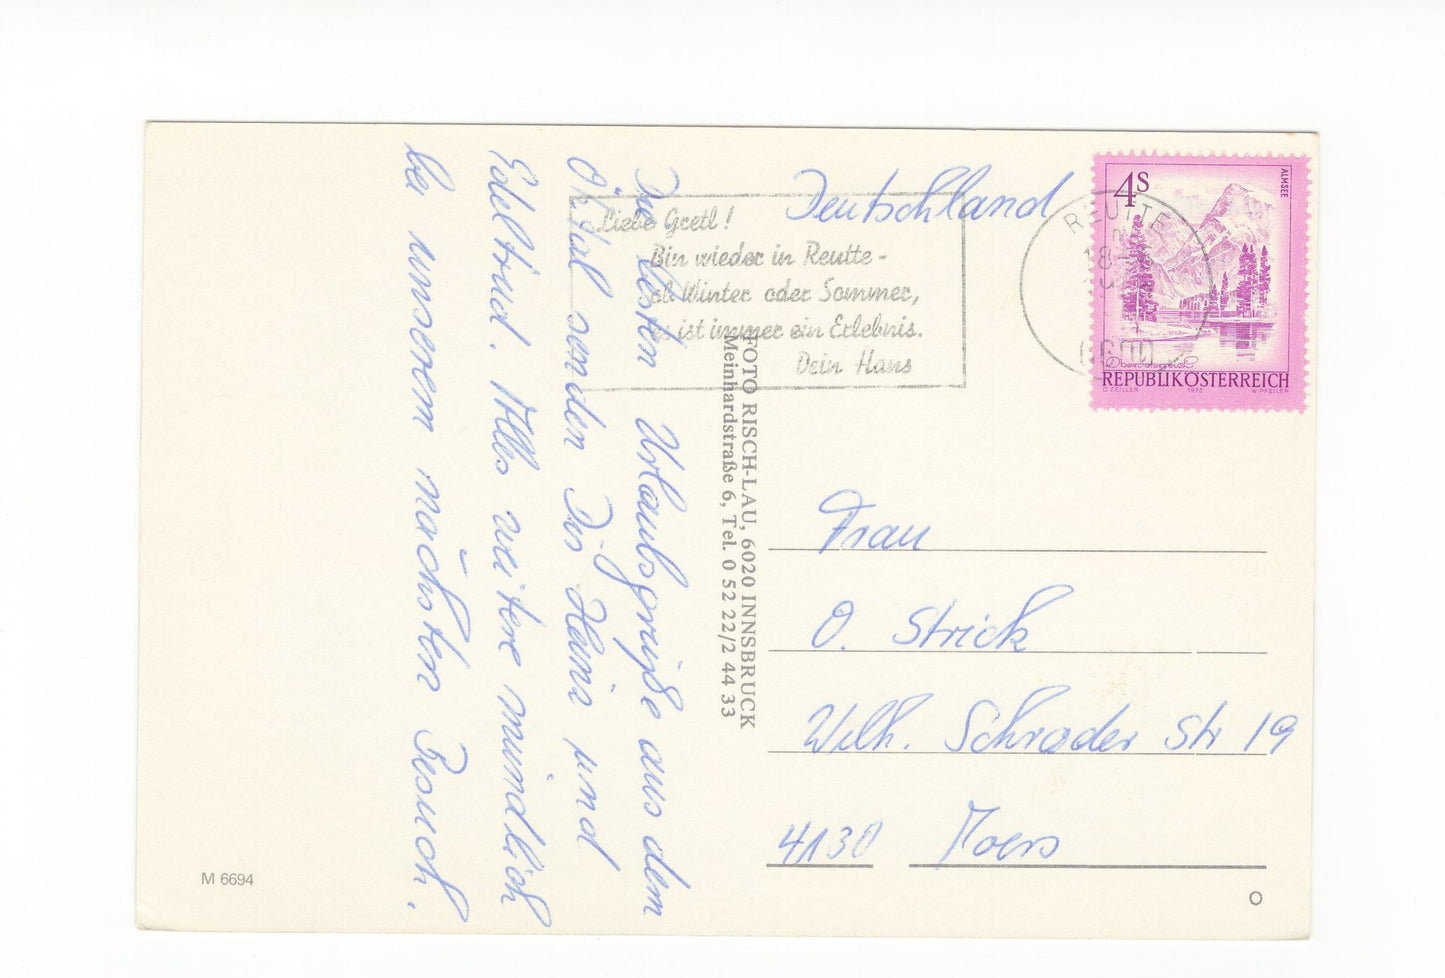 Die besten Urlaubsgrüße aus dem
Ötztal senden Dir Heinz und
Edeltrud. Alles weitere mündlich
bei unserem nächsten Besuch.
Deutschland
Liebe Gretl!
Bin wieder in Reutte -
ob Winter oder Sommer,
es ist immer ein Erlebnis.
Dein Hans
REUTTE
18
6600
4S
ALMSEE
Oberösterreich
REPUBLIK ÖSTERREICH
O. ZEILLER 1973 W. PFEILER
FOTO RISCH-LAU, 6020 INNSBRUCK
Meinhardstraße 6, Tel. 0 52 22/2 44 33
Frau
O. Strick
Wilh. Schroder Str 19
4130 Moers
M 6694
O